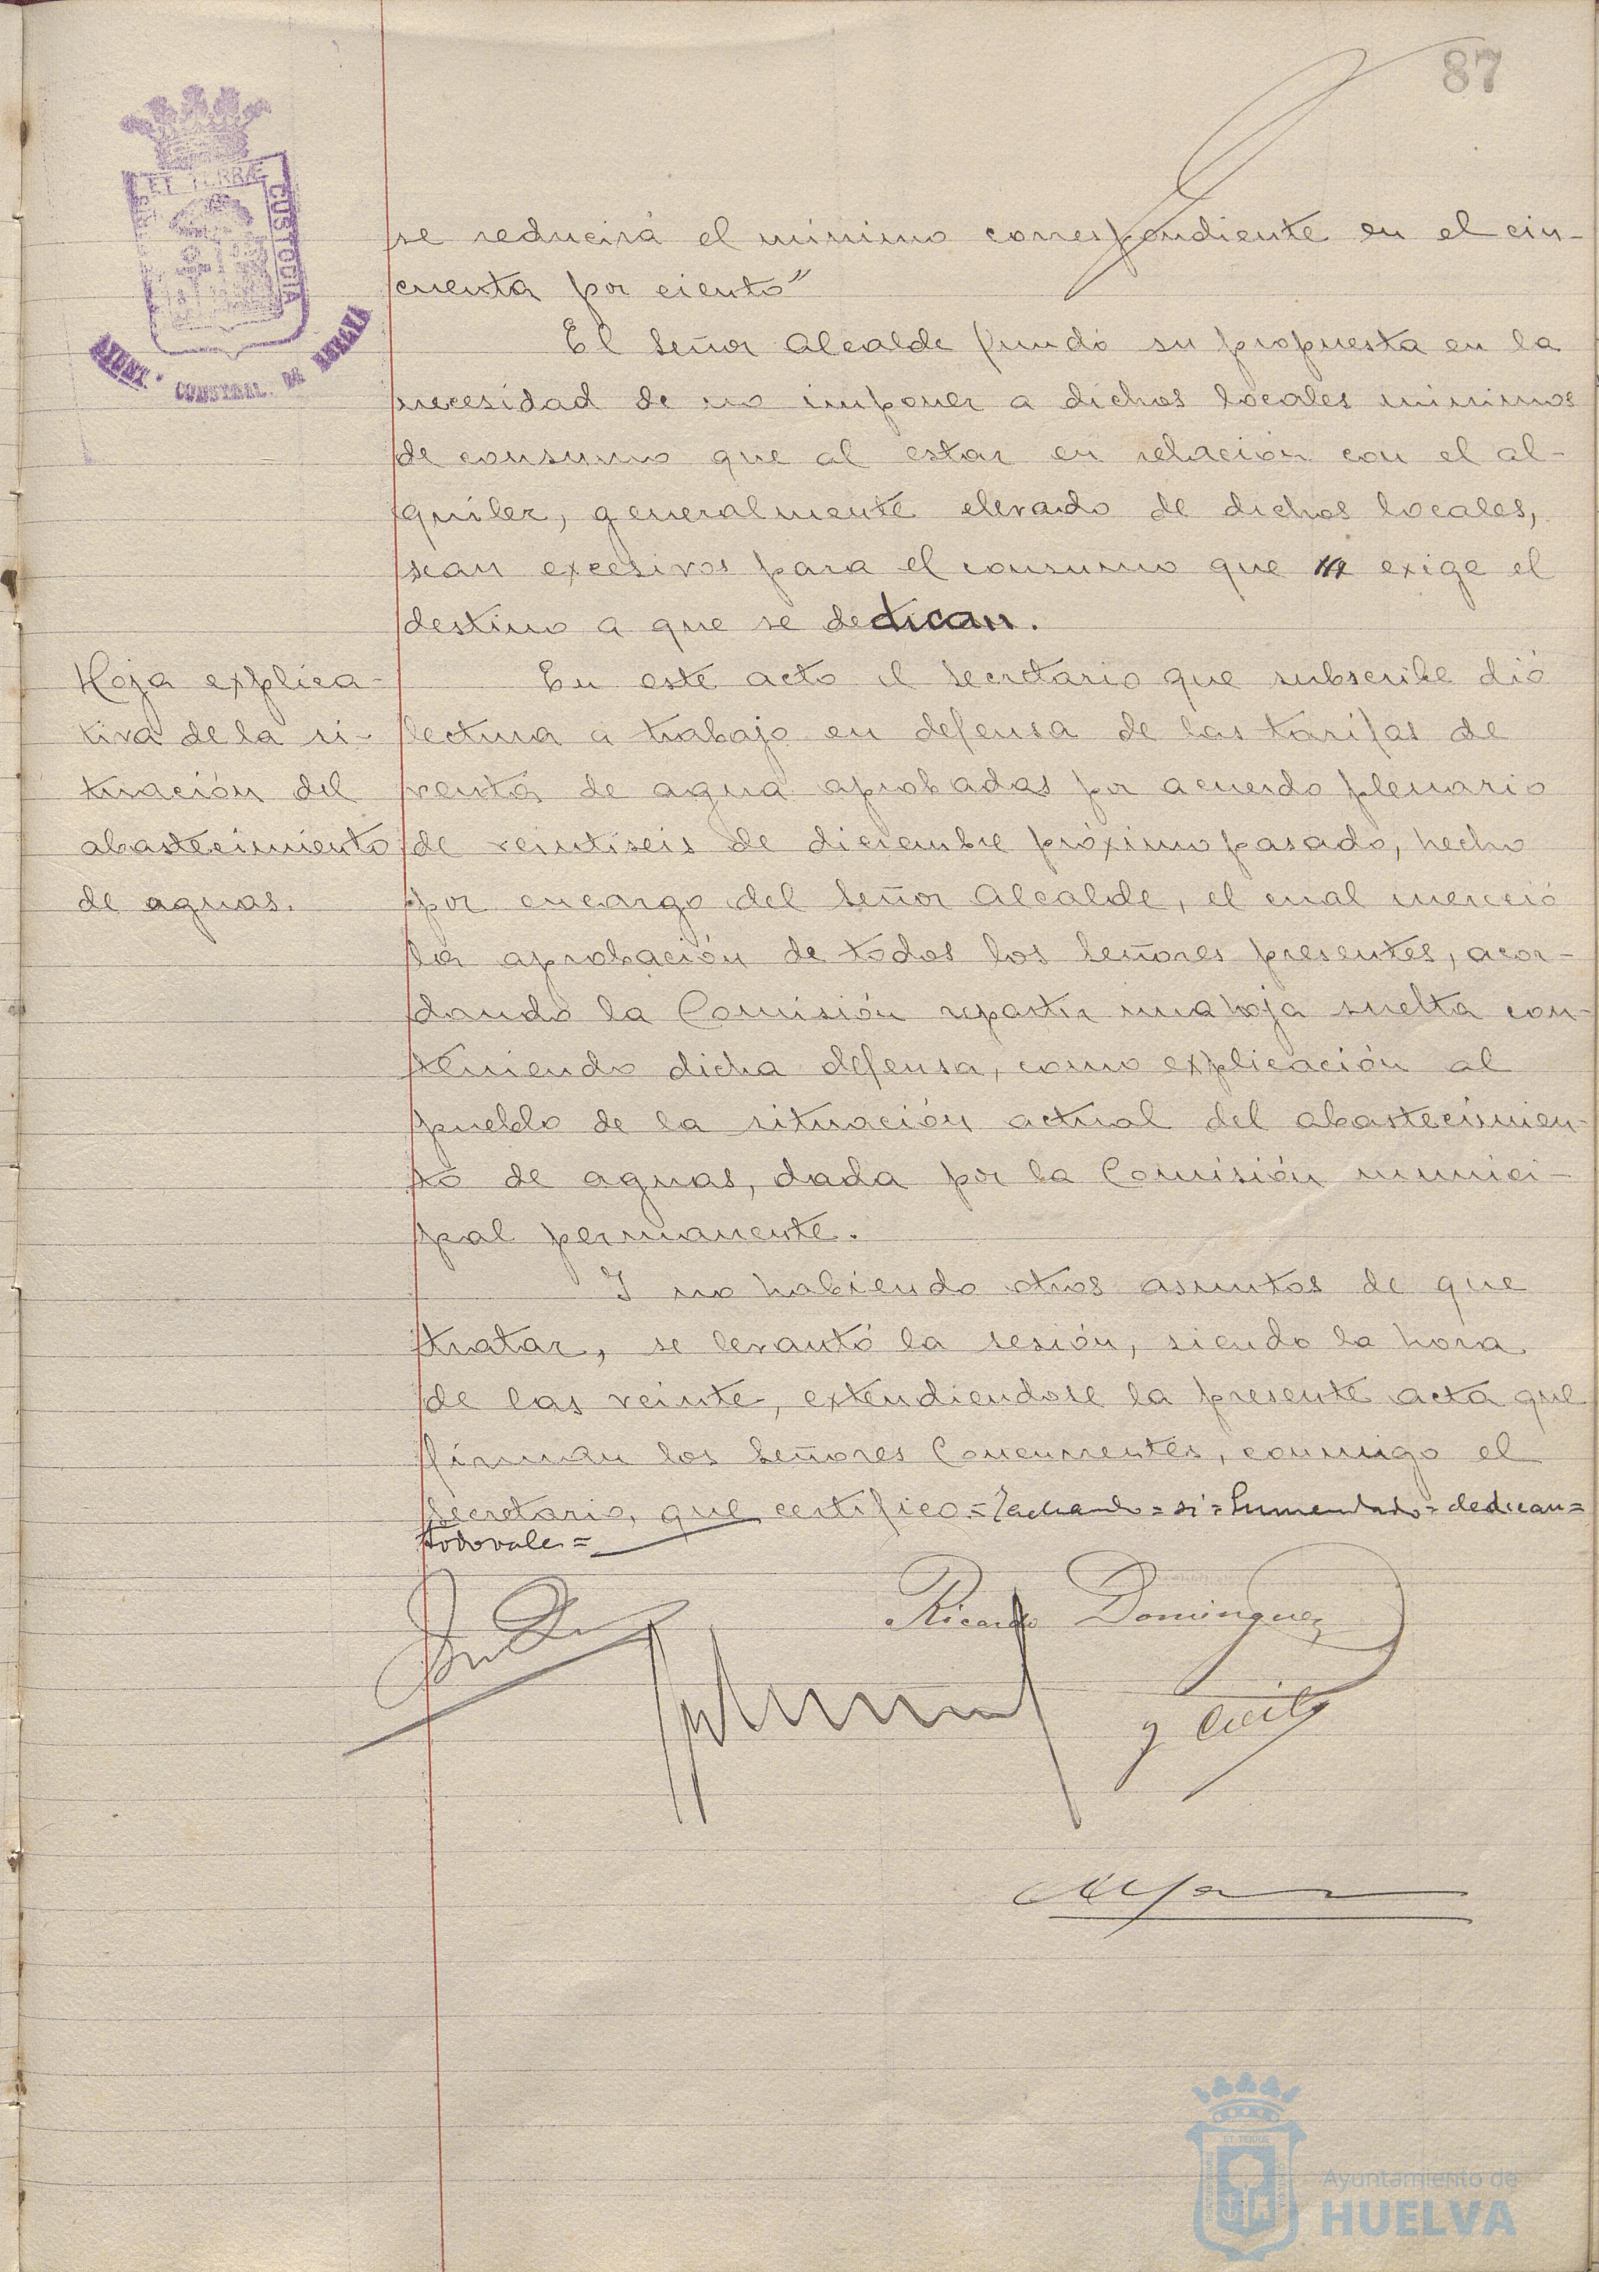 87
ET TERRÆ
CUSTODIA
AYUNT. CONSTNAL. DE HUELVA
se reducirá el mínimo correspondiente en el cin-
cuenta por ciento"
El Señor Alcalde fundó su propuesta en la
necesidad de no imponer a dichos locales mínimos
de consumo que al estar en relación con el al-
quiler, generalmente elevado de dichos locales,
sean excesivos para el consumo que exige el
destino a que se dedican.
Hoja explica-
tiva de la si-
tuación del
abastecimiento
de aguas.
En este acto el Secretario que subscribe dió
lectura a trabajo en defensa de las tarifas de
venta de agua aprobadas por acuerdo plenario
de veintiseis de diciembre próximo pasado, hecho
por encargo del Señor Alcalde, el cual mereció
la aprobación de todos los Señores presentes, acor-
dando la Comisión repartir una hoja suelta con-
teniendo dicha defensa, como explicación al
pueblo de la situación actual del abastecimien-
to de aguas, dada por la Comisión munici-
pal permanente.
Y no habiendo otros asuntos de que
tratar, se levantó la sesión, siendo la hora
de las veinte, extendiendose la presente acta que
firman los Señores Concurrentes, conmigo el
Secretario, que certifico.= Tachado = si = Enmendado = dedican =
todo vale =
Ricardo Dominguez
ET TERRÆ
Ayuntamiento de
HUELVA